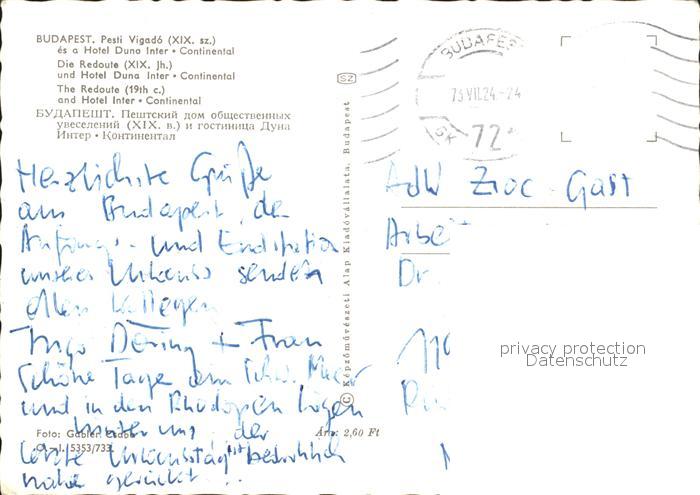 BUDAPEST. Pesti Vigadó (XIX. sz.)
és a Hotel Duna Inter • Continental
Die Redoute (XIX. Jh.)
und Hotel Duna Inter • Continental
The Redoute (19th c.)
and Hotel Inter • Continental
БУДАПЕШТ. Пештский дом общественных
увеселений (XIX. в.) и гостиница Дуна
Интер • Континентал
Herzlichste Grüße
aus Budapest, der
Anfangs- und Endstation
unseres Urlaubs senden
allen Kollegen
Ingo Döring + Frau
Schöne Tage am Schw. Meer
und in den Rhodopen liegen
hinter uns, der
letzte Urlaubstag ist bedrohlich
nahe gerückt
Foto: Gábler Csaba
5353/733
Ára: 2,60 Ft
SZ
© Képzőművészeti Alap Kiadóvállalata, Budapest
BUDAPES
72
AdW Gast
Arbe
Dr.
privacy protection
Datenschutz